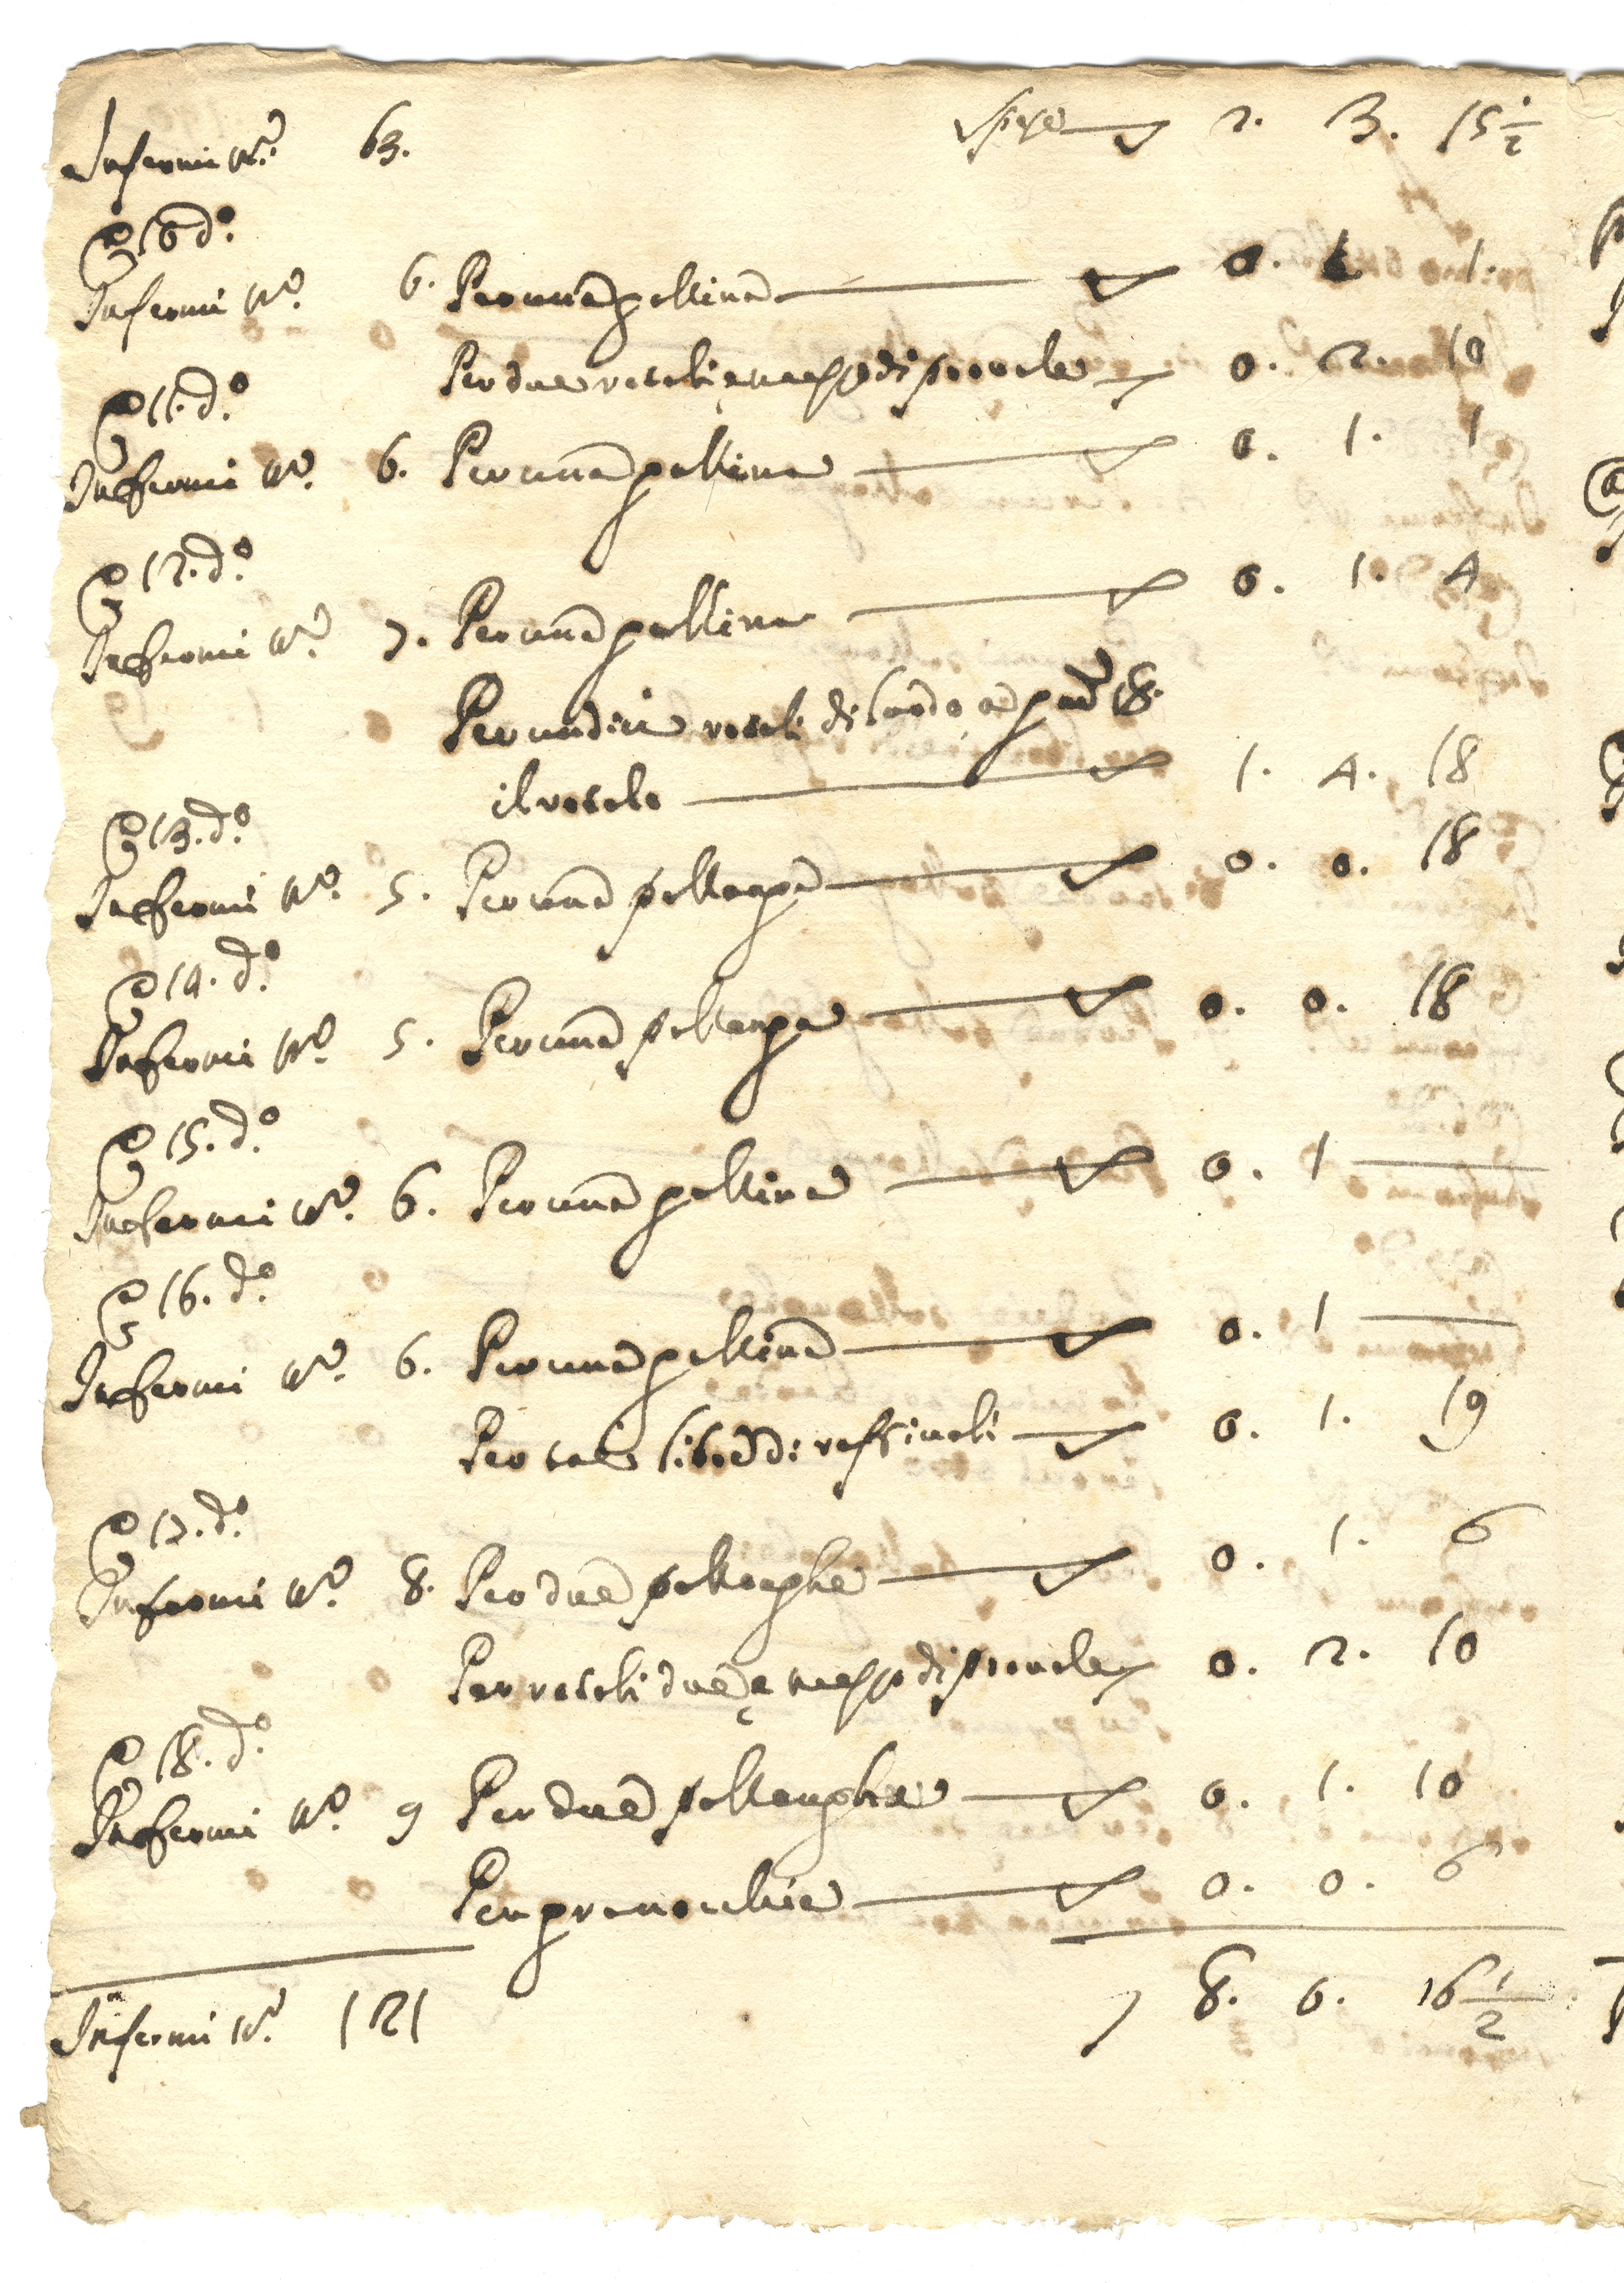 Infermi N.º 63. Spesa 2. 3. 15 1/2
A 10 d.º
Infermi N.º 6. Per una gallina 0. 1. 1.
Per due rotoli e mezzo di 0. 2. 10
A 11. d.º
Infermi N.º 6. Per una gallina 0. 1. 1
A 12. d.º
Infermi N.º 7. Per una gallina 0. 1. 4
Per undici rotoli di lardo a gra 18.
il rotolo 1. 4. 18
A 13. d.º
Infermi N.º 5. Per una pollanga 0. 0. 18
A 14. d.º
Infermi N.º 5. Per una pollanga 0. 0. 18
A 15. d.º
Infermi N.º 6. Per una gallina 0. 1
A 16. d.º
Infermi N.º 6. Per una gallina 0. 1
Per libre di 0. 1. 19
A 17. d.º
Infermi N.º 8. Per due pollanghe 0. 1. 6
Per rotoli due e mezzo di 0. 2. 10
A 18. d.º
Infermi N.º 9 Per due pollanghe 0. 1. 10
Per granonchie 0. 0. 6
Infermi N.º 121 8. 0. 16 1/2